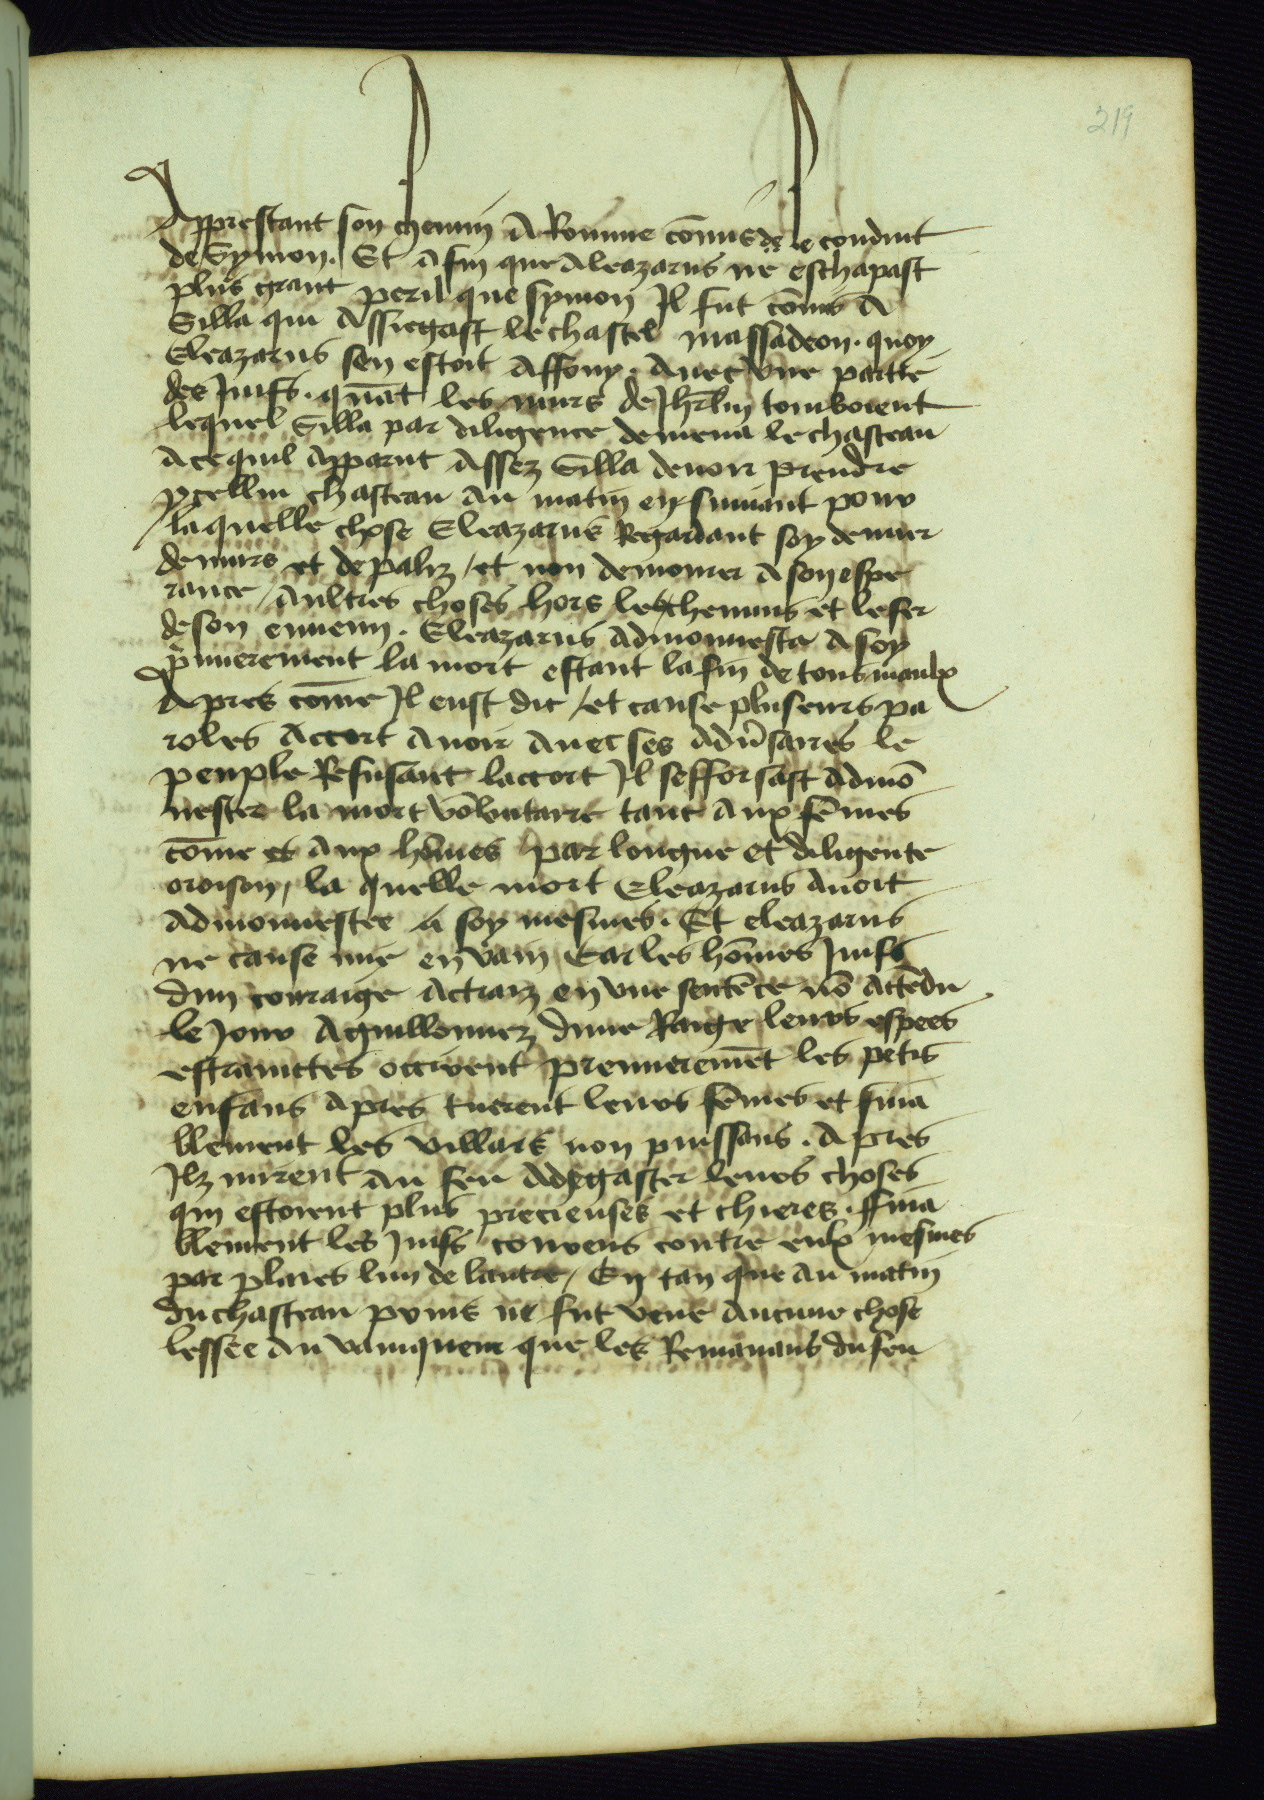 219
Apprestant son chemin A Romme cõmisde le conduit
de Symon. Et Afin que Aleazarus ne eschapast
plus grant peril que symon Jl fut cõmis A
Silla qui Assiegast le chastel massadeon. quoy
Eleazarus sen estoit Affouy. Avec vne partie
des Juifs. quãt les murs de Jhrlm tomboient
lequel Silla par diligence demena le chasteau
Acequil Apparut Assez Silla devoir prendre
ycellui chasteau Au matin en suivant pour
laquelle chose Eleazarus Regardant soy demuer
de murs et de paliz / et non demourer A son espe
rance / Aultres choses hors les chemins et le fer
de son ennemi. Eleazarus Admonnesta A soy
p̃mierement la mort estant la fin de tous maulx
Apres cõme Jl eust dit / et cause pluseurs pa
roles Accort Avoir Avec ses Adũsaires le
peuple Refusant laccort Jl sefforsast Admõ
nester la mort voluntaire tant Aux fẽmes
cõme et Aux hõmes par longue et diligente
oroison, la quelle mort Eleazarus Avoit
Admonnestee a soy mesmes. Et eleazarus
ne cause mie en vain Car les hõmes Juifs
dun couraige Actraiz en vne sentẽce nõ Actẽdu
le Jour Aguillonnez dune Raige leurs espees
estrainctes occirent premieremẽt les petis
enfans Apres tuerent leurs fẽmes et fina
blement les villars non puissans. Apres
Jlz mirent Au feu Adegaster leurs choses
qui estoient plus precieuses et chieres. ffina
blement les Juifs convers contre eulx mesmes
par plaies lun de lautre / En tan que Au matin
du chasteau prins ne fut veue Aucune chose
lessee Au vainqueur que les Remanans du feu